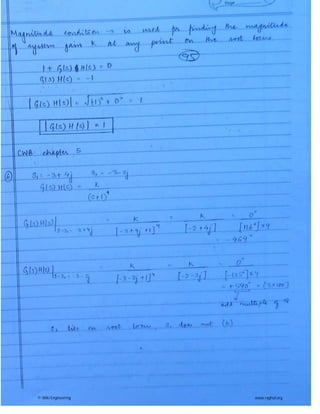 Magnitude condition → is used for finding the magnitude
of system gain K at any point on the root locus.
95
1 + G(s) H(s) = 0
G(s) H(s) = -1
|G(s) H(s)| = √(-1)² + 0² = 1
|G(s) H(s)| = 1
CWB chapter 5
6 S₁ = -3+4j S₂ = -3-2j
G(s) H(s) = K
(s+1)⁴
G(s) H(s)| = K = K = 0°
S=S₁ = -3+4j [-3+4j+1]⁴ [-2+4j]⁴ [116°]×4
= -464°
G(s) H(s)| = K = K = 0°
S=S₂ = -3-2j [-3-2j+1]⁴ [-2-2j]⁴ [-135°]×4
= +540° = (3×180°)
odd multiple of
S₂ lies on root locus, S₁ does not (b)
© Wiki Engineering www.raghul.org